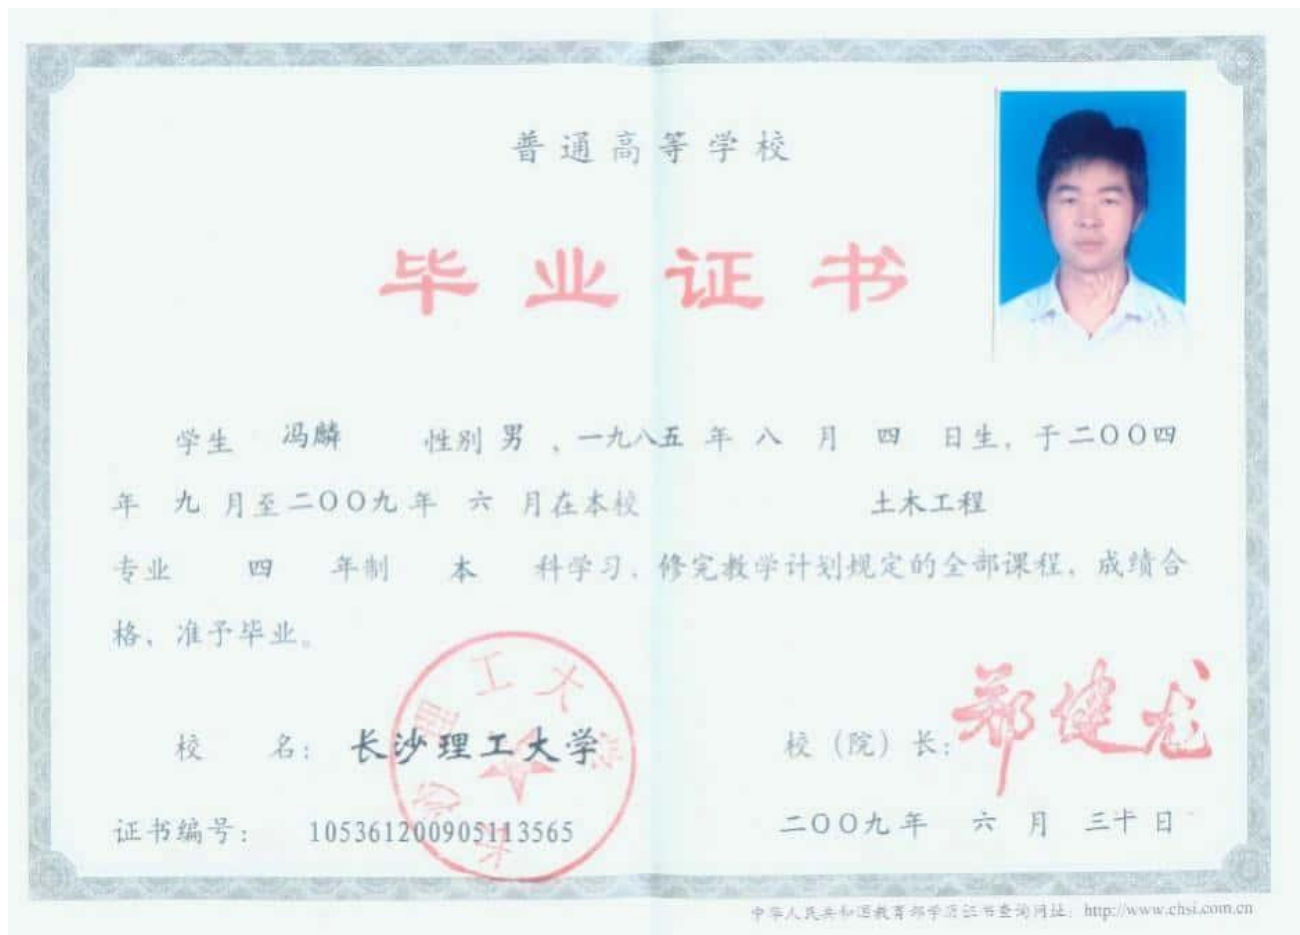 普通高等学校
毕业证书
学生 冯麟 性别 男 ,一九八五 年 八 月 四 日生,于二〇〇四
年 九 月至二〇〇九年 六 月在本校 土木工程
专业 四 年制 本 科学习,修完教学计划规定的全部课程,成绩合
格,准予毕业。
校 名: 长沙理工大学
校(院)长: 郑健龙
长沙理工大学
证书编号: 105361200905113565
二〇〇九年 六 月 三十日
中华人民共和国教育部学历证书查询网址:http://www.chsi.com.cn